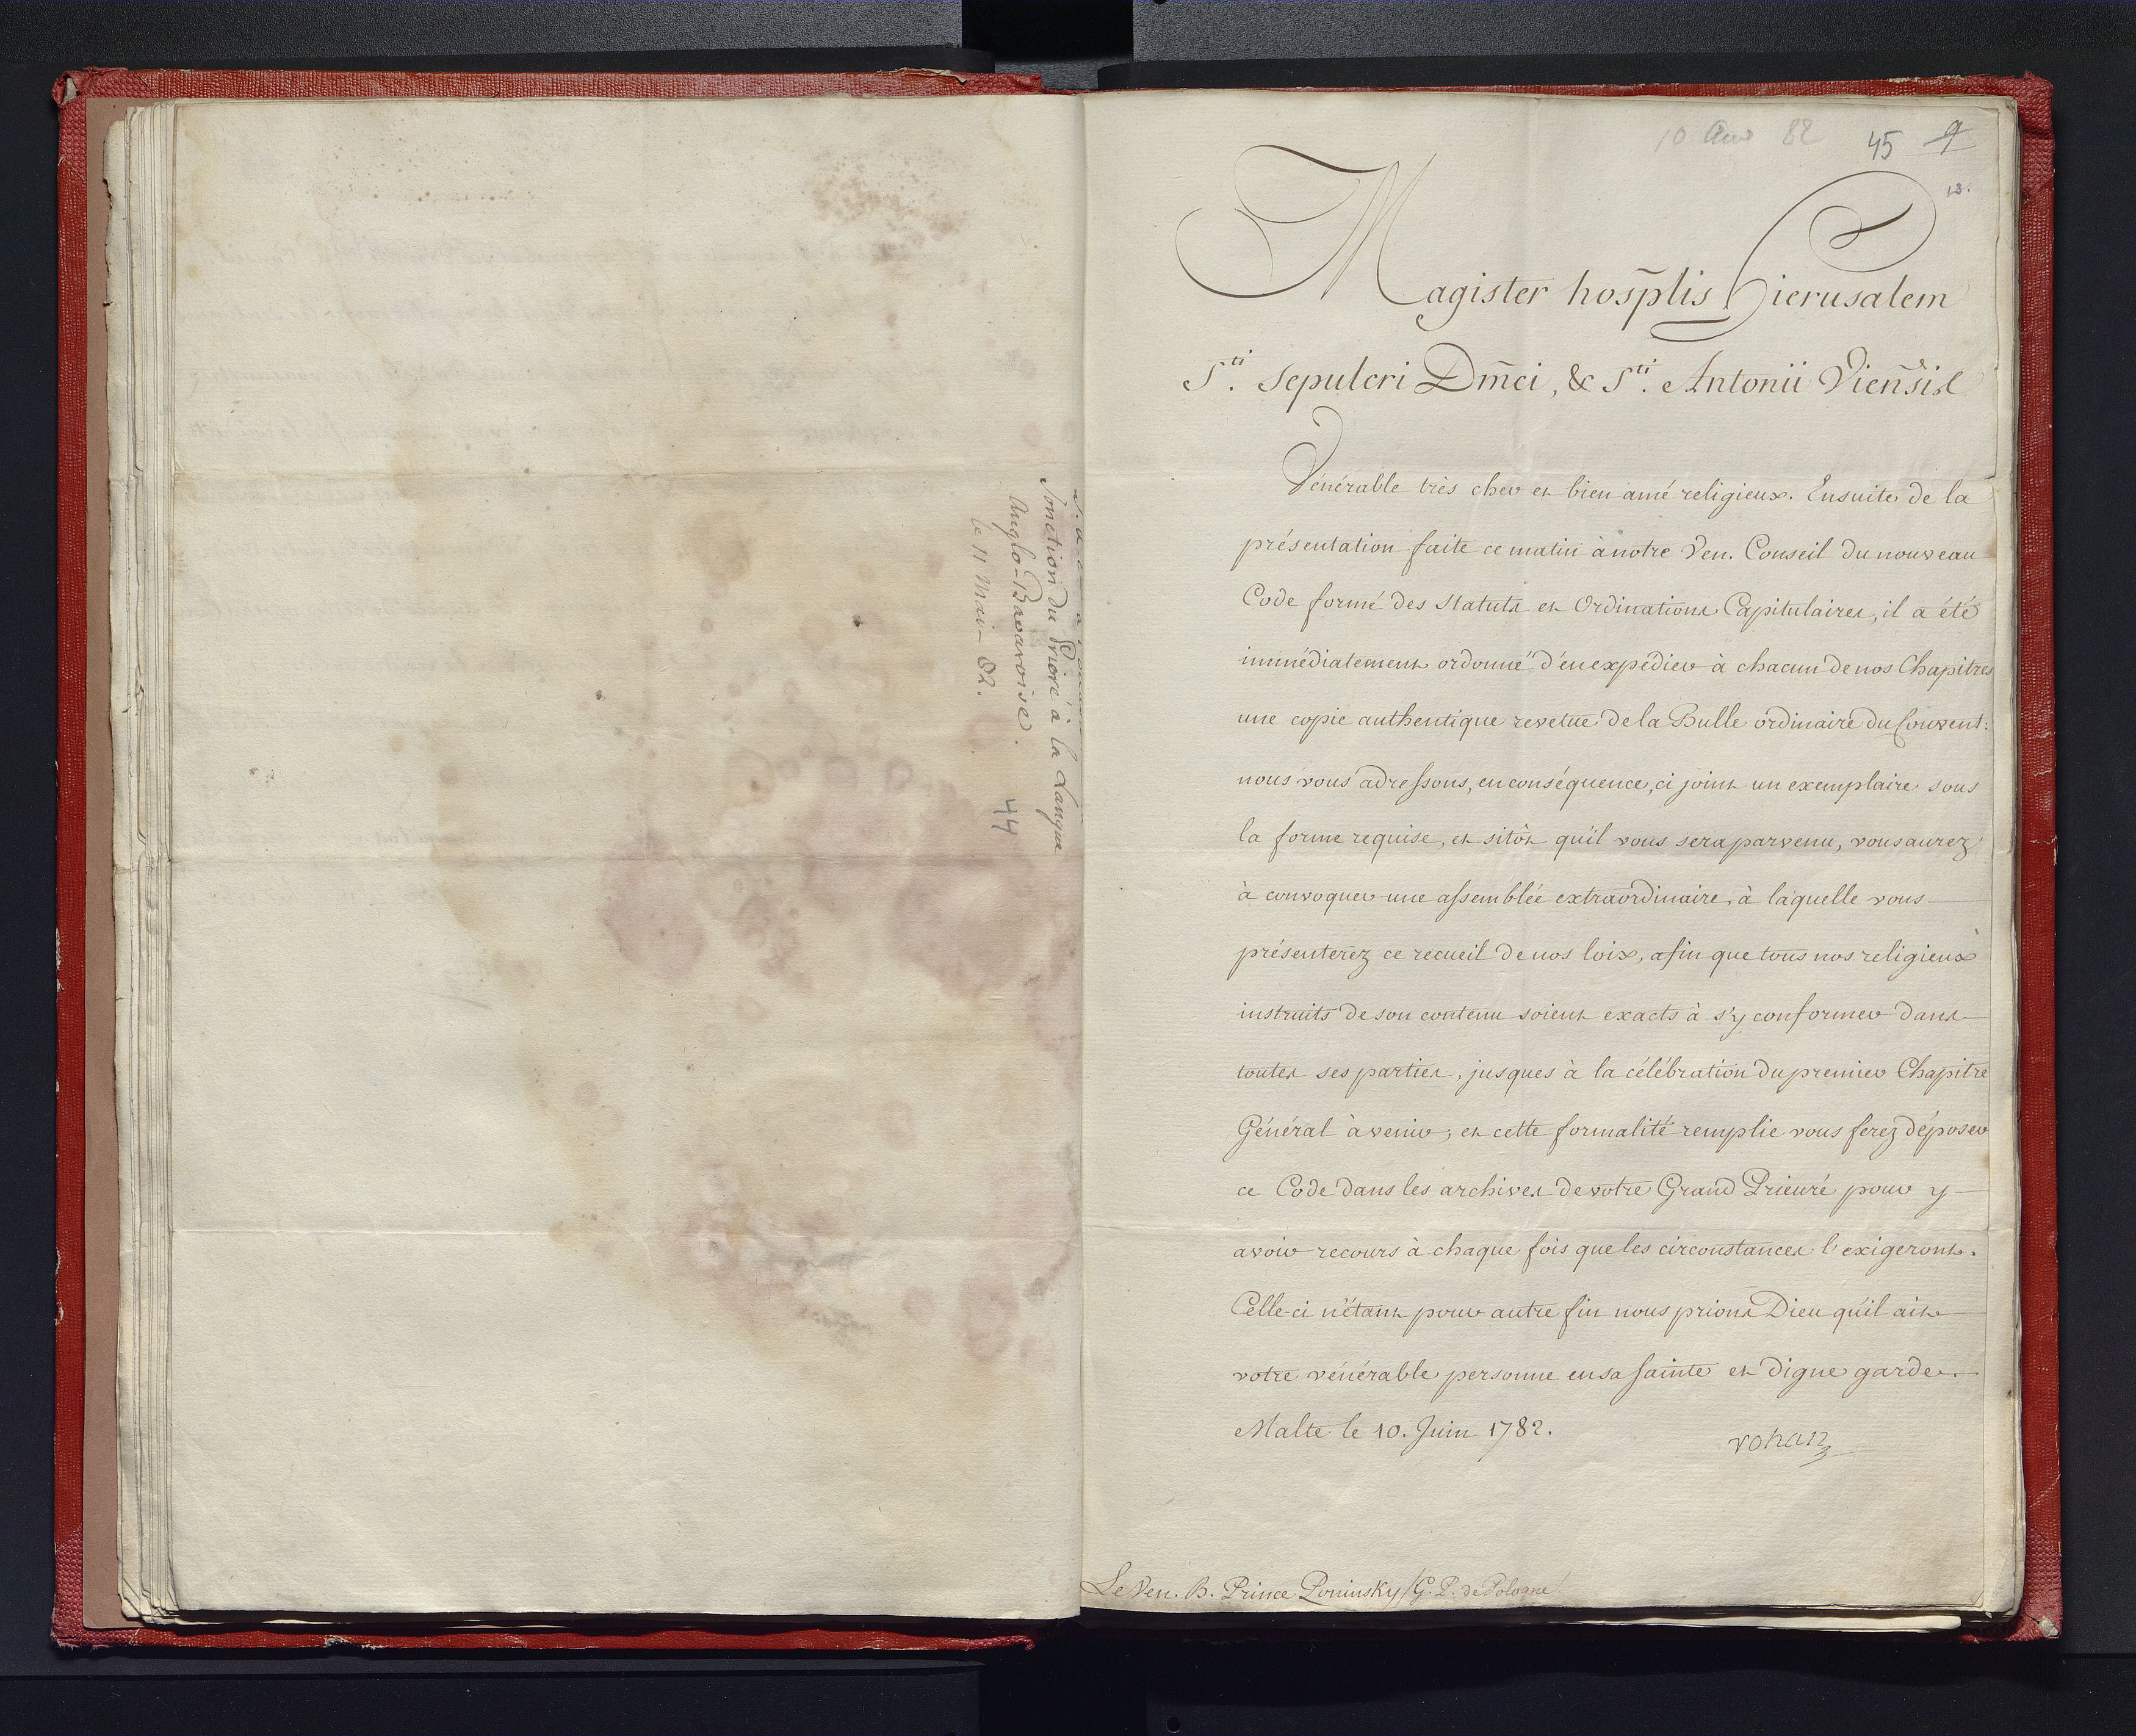 Jonction du Prioré à la Langue
Anglo-Bavaroise.
le 11 Mai - 82.
44
10 82
45 9
13.
Magister hosp̄lis Hierusalem
S.ti Sepulcri Dm̄ci, & S.ti Antonii Vien̄sis
Vénérable très cher et bien amé religieux. Ensuite de la
présentation faite ce matin à notre Ven. Conseil du nouveau
Code formé des Statuts et Ordinations Capitulaires, il a été
immédiatement ordonné d'en expédier à chacun de nos Chapitres
une copie authentique revetue de la Bulle ordinaire du Couvent:
nous vous adressons, en conséquence, ci joint un exemplaire sous
la forme requise, et sitôt qu'il vous sera parvenu, vous aurez
à convoquer une assemblée extraordinaire, à laquelle vous
présenterez ce recueil de nos loix, afin que tous nos religieux
instruits de son contenu soient exacts à s'y conformer dans
toutes ses parties, jusques à la célébration du premier Chapitre
Général à venir; et cette formalité remplie vous ferez déposer
ce Code dans les archives de votre Grand Prieuré pour y
avoir recours à chaque fois que les circonstances l'exigeront.
Celle-ci n'étant pour autre fin nous prions Dieu qu'il ait
votre vénérable personne en sa sainte et digne garde.
Malte le 10. Juin 1782.
rohan
Le Ven. B. Prince Poninsky G. P. de Pologne